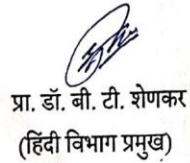 प्रा. डॉ. बी. टी. शेणकर
(हिंदी विभाग प्रमुख)